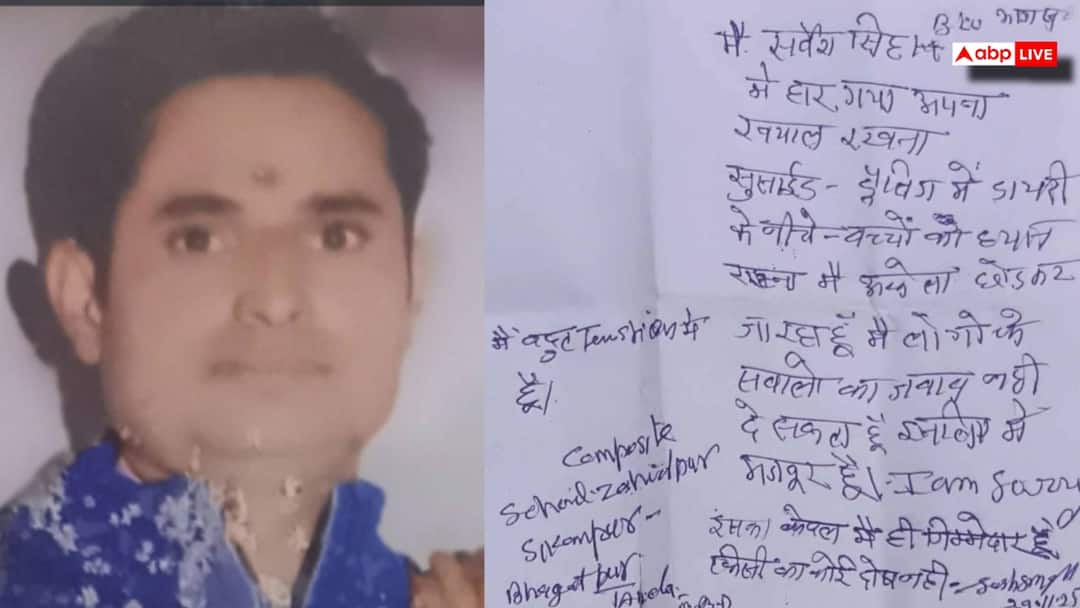 abp LIVE
मै. सर्वेश सिंह
मे हार गया अपना
ख्याल रखना
सुसाईड - ड्रॉविग में डायरी
के नीचे - बच्चों को ध्यान
रखना मै अकेला छोडकर
जा रहा हूँ मै लोगो के
सवालो का जवाब नही
दे सकता हूँ इसलिए मे
मजबूर हूँ। - I am sorry
इसका केवल मै ही जिम्मेदार हूँ
किसी का कोई दोष नही -
मैं बहुत Tenstion मे
हूँ।
Composite
School-Zahidpur
Sikampur -
Bhagatpur